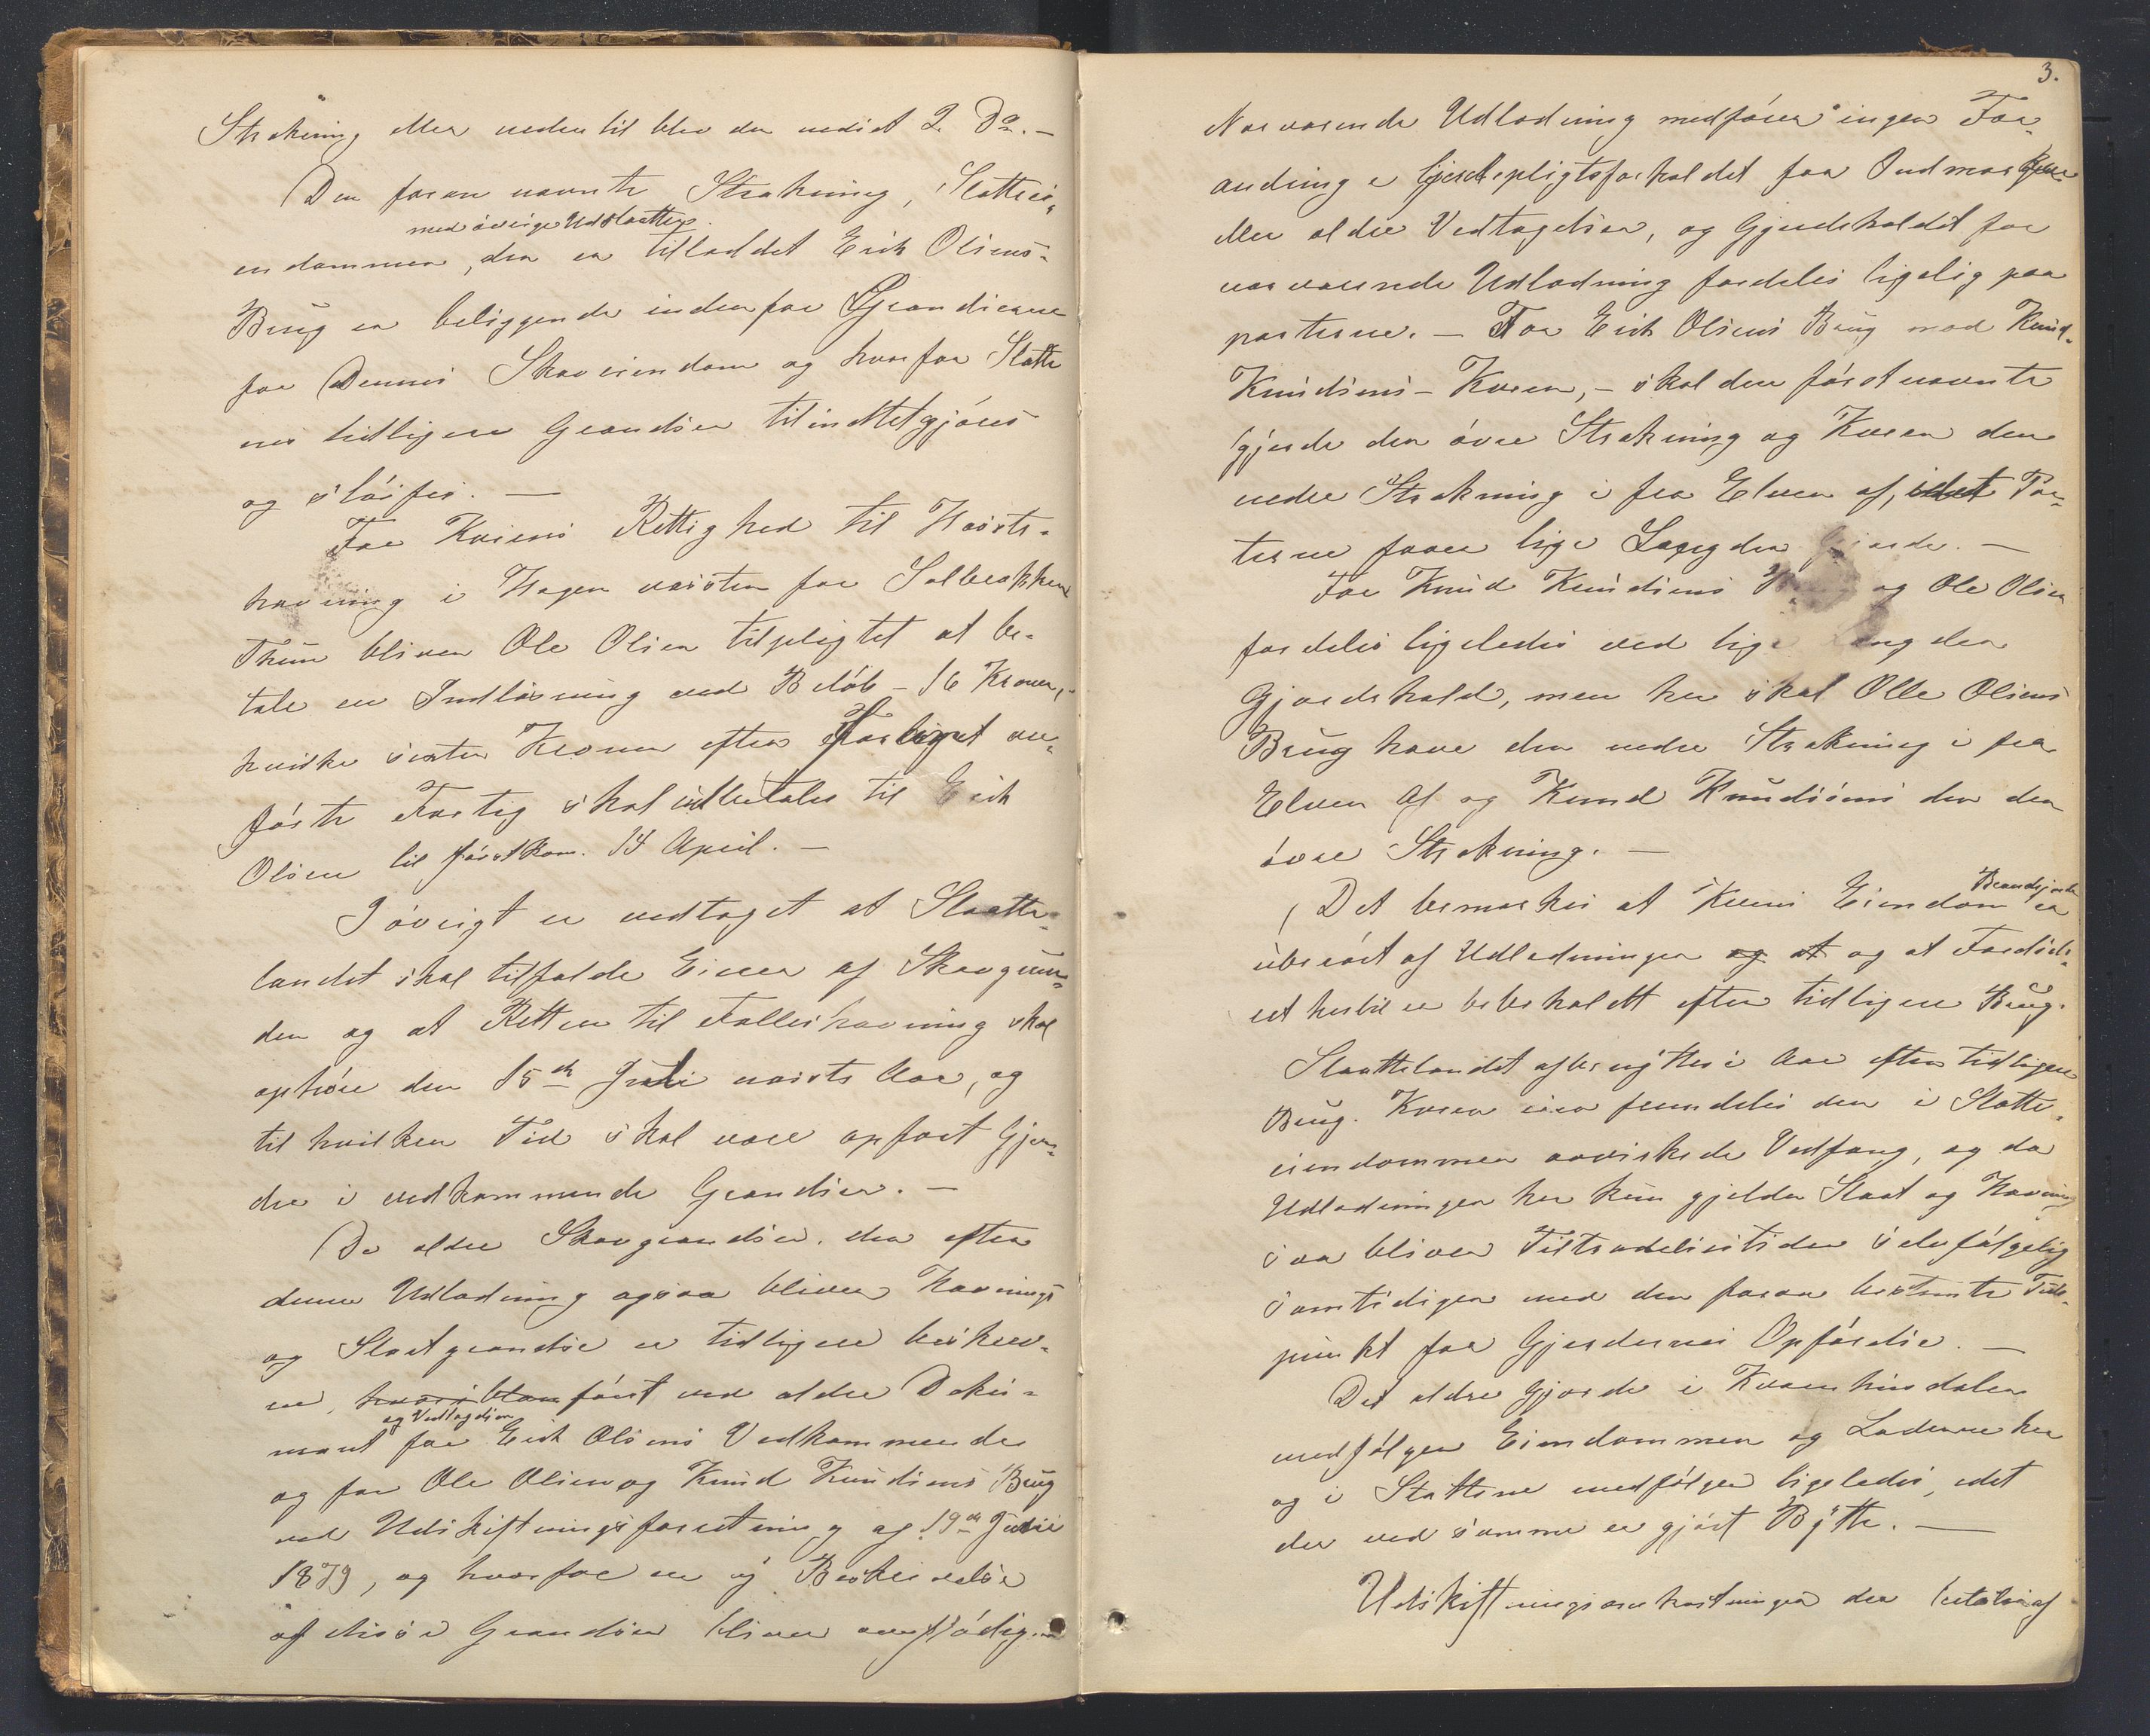 Strækning eller nedentil blev der nedsat 2 Do. -
Den foran nævnte Strækning, Slattei-
med øvrige Udslaatter
endommen, der er tilloddet Erik Olsens
Brug er beliggende indenfor Grændserne
for Dennes Skoveiendom og hvorfor Slatte
nes tidligere Grændser tilintetgjøres
og sløifes. —
For Kvens Rettighed til Høst-
havning i Hagen vesten for Solbrækken
Thun bliver Ole Olsen tilpligtet at be-
tale en Indløsning ved Beløb - 16 Kroner,
hvilke sexten Kroner efter Forliget an-
førte Partig skal udbetales til Erik
Olsen til førstkom. 14 April. —
I øvrigt er vedtaget at Slaatte-
landet skal tilfalde Eieren af Skovgrun-
den og at Retten til Fælleshavning skal
ophøre den 15de Juli næste Aar, og
til hvilken Tid skal være opført Gjær-
der i vedkommende Grændser. —
De ældre Skovgrændser, der efter
denne Udlodning ogsaa bliver Havnings
og Slaatgrændse er tidligere beskrev-
ne, hvori blan først ved ældre Doku-
og Vedtagelser
ment for Erik Olsens Vedkommende
og for Ole Olsen og Knud Knudsens Brug
ved Udskiftningsforretning af 19de Juni
1879, og hvorfor en ny Beskrivelse
af disse Grændser bliver overflødig.
3.
Nærværende Udlodning medfører ingen For-
andring i Gjerdepligtsforholdet for Indmarkene
eller ældre Vedtagelser, og Gjerdeholdet for
nærværende Udlodning fordeles ligelig paa
parterne. — For Erik Olsens Brug mod Knud
Knudsens - Kveen, - skal den førstnævnte
gjerde den øvre Strækning og Kveen den
nedre Strækning i fra Elven af, idet Par-
terne faaer lige Længder Gjerde. —
For Knud Knudsens og Ole Olsen
fordeles ligeledes ved lige Længder
Gjærdehold, men her skal Olle Olsens
Brug have den nedre Strækning i fra
Elven af og Knud Knudsens der den
øvre Strækning. —
Brandsjorde
Det bemærkes at Kvens Eiendom er
uberørt af Udlodningen og at og at Færdsels-
ret hertil er bebeholdt efter tidligere Brug.
Slaattelandet afbenyttes i Aar efter tidligere
Brug. Kveen eier fremdeles den i Slatte-
eiendommen Vedfang, og da
Udlodningen her kun gjelder Slaat og Havning
saa bliver Tiltrædelsestiden selvfølgelig
samtidigen med den foran bestemte Tids-
punkt for Gjerdernes Opførelse. —
Det ældre Gjærde i Kvernhusdalen
medfølger Eiendommen og Laderne her
og i Slattene medfølger ligeledes, idet
der ved samme er gjort Bytte. —
Udskiftningsomkostningen der betales af